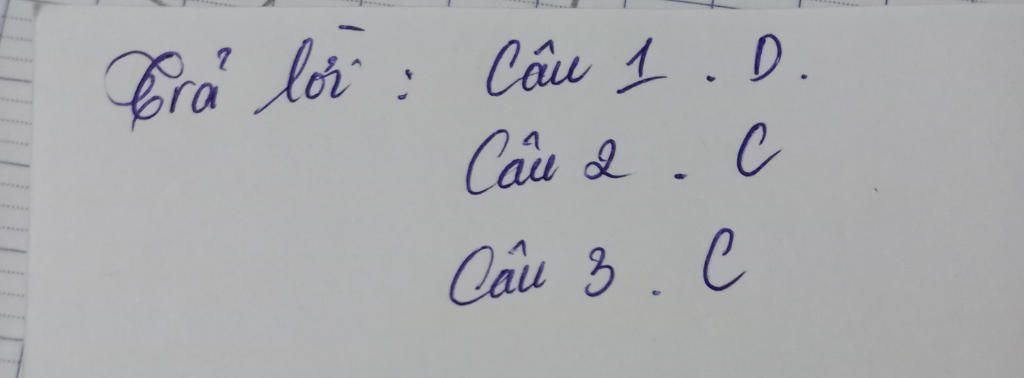 Trả lời : Câu 1 . D.
Câu 2 . C
Câu 3 . C